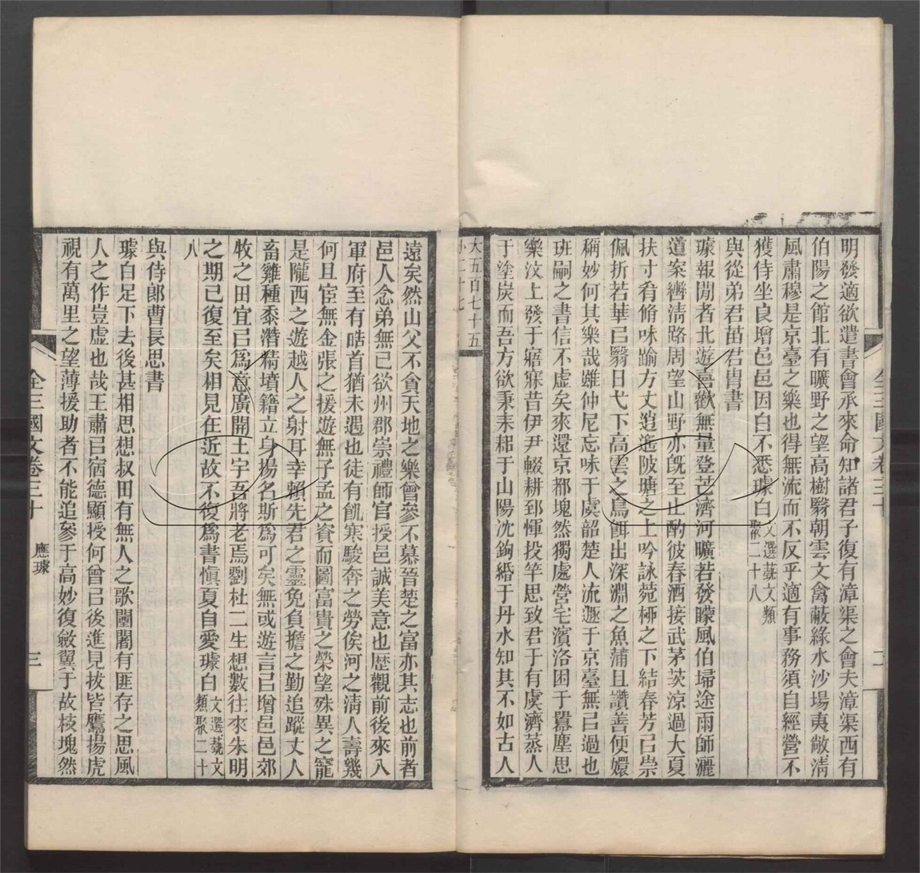 明發適欲遣書會承來命知諸君子復有漳渠之會夫漳渠西有
伯陽之館北有曠野之望高樹翳朝雲文禽蔽綠水沙場夷敞清
風肅穆是京臺之樂也得無流而不反乎適有事務須自經營不
獲侍坐良增邑邑因白不悉璩白文選蓺文類聚二十八
與從弟君苗君胄書
璩報閒者北遊喜歡無量登芒濟河曠若發矇風伯埽途雨師灑
道案轡清路周望山野亦旣至止酌彼春酒接武茅茨涼過大夏
扶寸肴脩味踰方丈逍遙陂塘之上吟詠菀柳之下結春芳㠯崇
佩折若華㠯翳日弋下高雲之鳥餌出深淵之魚蒲且讚善便嬛
稱妙何其樂哉雖仲尼忘味于虞韶楚人流遯于京臺無㠯過也
班嗣之書信不虛矣來還京都塊然獨處營宅濱洛困于囂塵思
樂汶上發于寤寐昔伊尹輟耕郅惲投竿思致君于有虞濟蒸人
于塗炭而吾方欲秉耒耜于山陽沈鉤緡于丹水知其不如古人
大五百七十五
小二十七
全三國文卷三十
二
遠矣然山父不貪天地之樂曾參不慕晉楚之富亦其志也前者
邑人念弟無已欲州郡崇禮師官授邑誠美意也歷觀前後來入
軍府至有皓首猶未遇也徒有飢寒駿奔之勞俟河之清人壽幾
何且宦無金張之援遊無子孟之資而圖富貴之榮望殊異之寵
是隴西之遊越人之射耳幸賴先君之靈免負擔之勤追蹤丈人
畜雞種黍潛精墳籍立身揚名斯爲可矣無或遊言㠯增邑邑郊
牧之田宜㠯爲意廣開土宇吾將老焉劉杜二生想數往來朱明
之期已復至矣相見在近故不復爲書愼夏自愛璩白文選蓺文類聚二十
八
與侍郎曹長思書
璩白足下去後甚相思想叔田有無人之歌闉闍有匪存之思風
人之作豈虛也哉王肅㠯宿德顯授何曾㠯後進見拔皆鷹揚虎
視有萬里之望薄援助者不能追參于高妙復斂翼于故枝塊然
全三國文卷三十
應璩
三